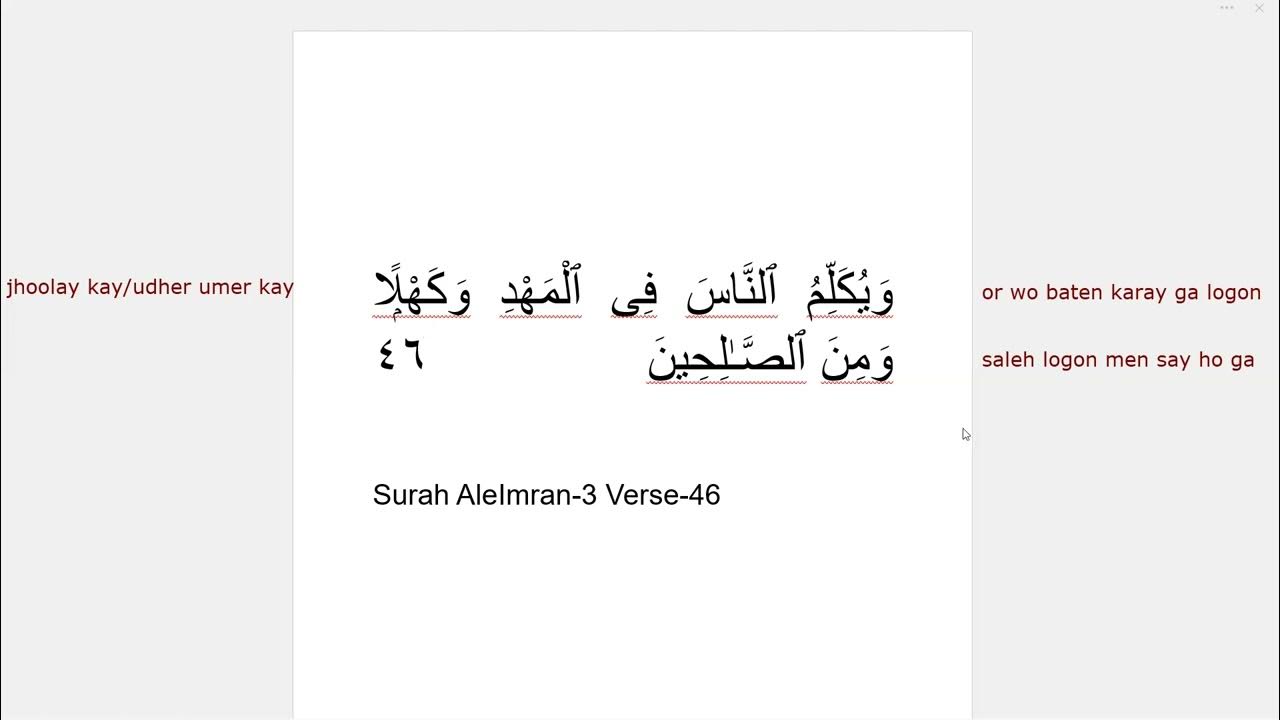 jhoolay kay/udher umer kay
وَيُكَلِّمُ ٱلنَّاسَ فِى ٱلْمَهْدِ وَكَهْلًۭا
or wo baten karay ga logon
وَمِنَ ٱلصَّـٰلِحِينَ ٤٦
saleh logon men say ho ga
Surah AleImran-3 Verse-46